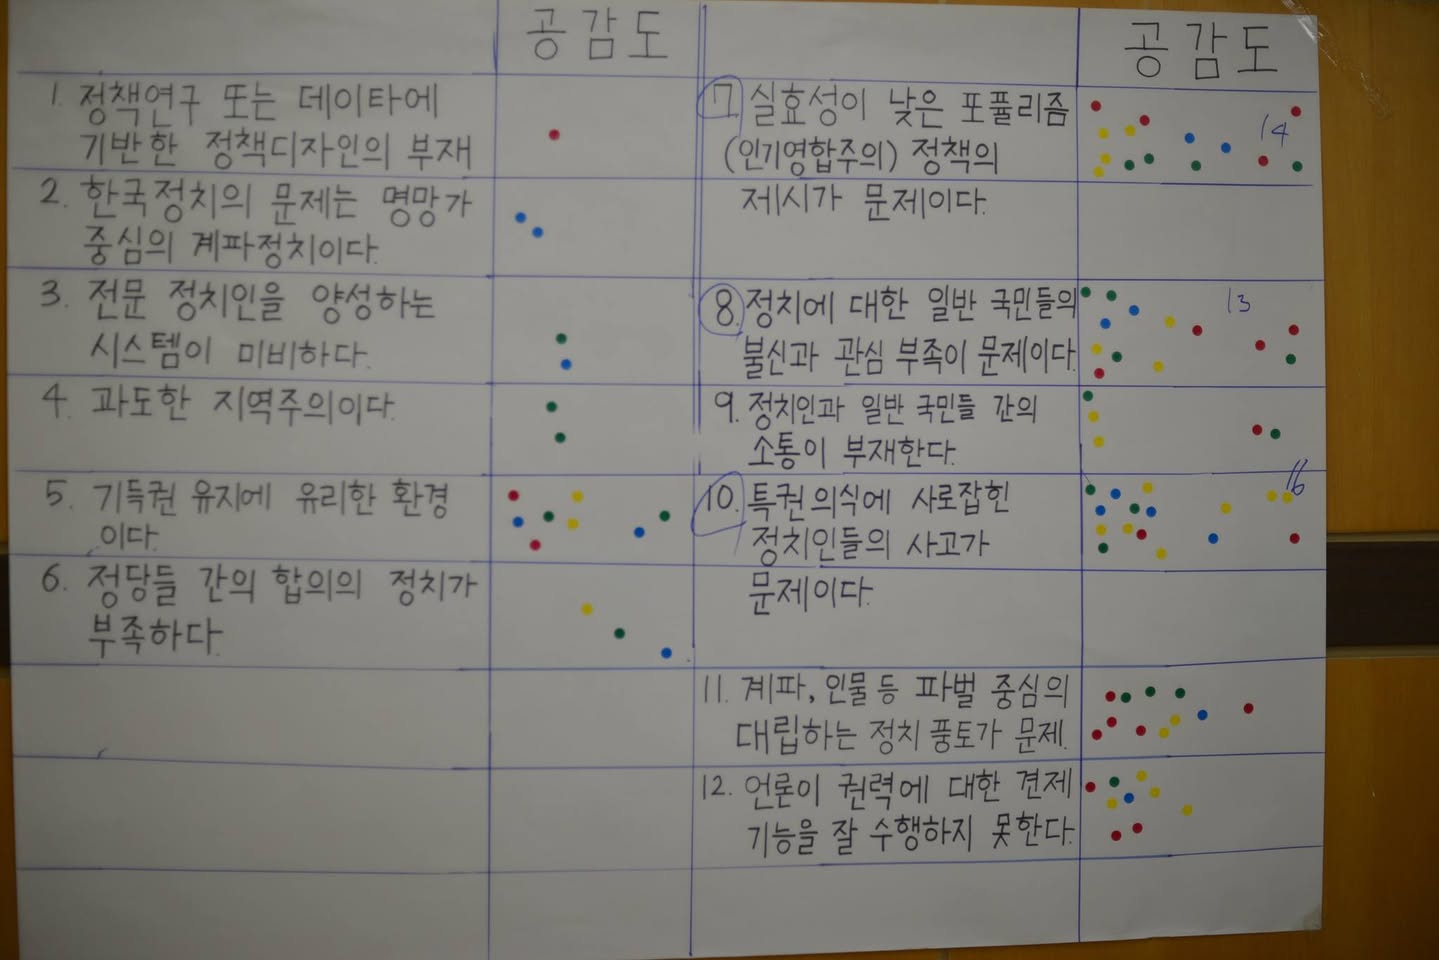 공감도
1. 정책연구 또는 데이타에
기반한 정책디자인의 부재
2. 한국정치의 문제는 명망가
중심의 계파정치이다.
3. 전문 정치인을 양성하는
시스템이 미비하다.
4. 과도한 지역주의이다.
5. 기득권 유지에 유리한 환경
이다.
6. 정당들 간의 합의의 정치가
부족하다.
공감도
7. 실효성이 낮은 포퓰리즘
(인기영합주의) 정책의
제시가 문제이다.
14
8. 정치에 대한 일반 국민들의
불신과 관심 부족이 문제이다.
13
9. 정치인과 일반 국민들 간의
소통이 부재한다.
10. 특권의식에 사로잡힌
정치인들의 사고가
문제이다.
16
11. 계파, 인물 등 파벌 중심의
대립하는 정치 풍토가 문제.
12. 언론이 권력에 대한 견제
기능을 잘 수행하지 못한다.